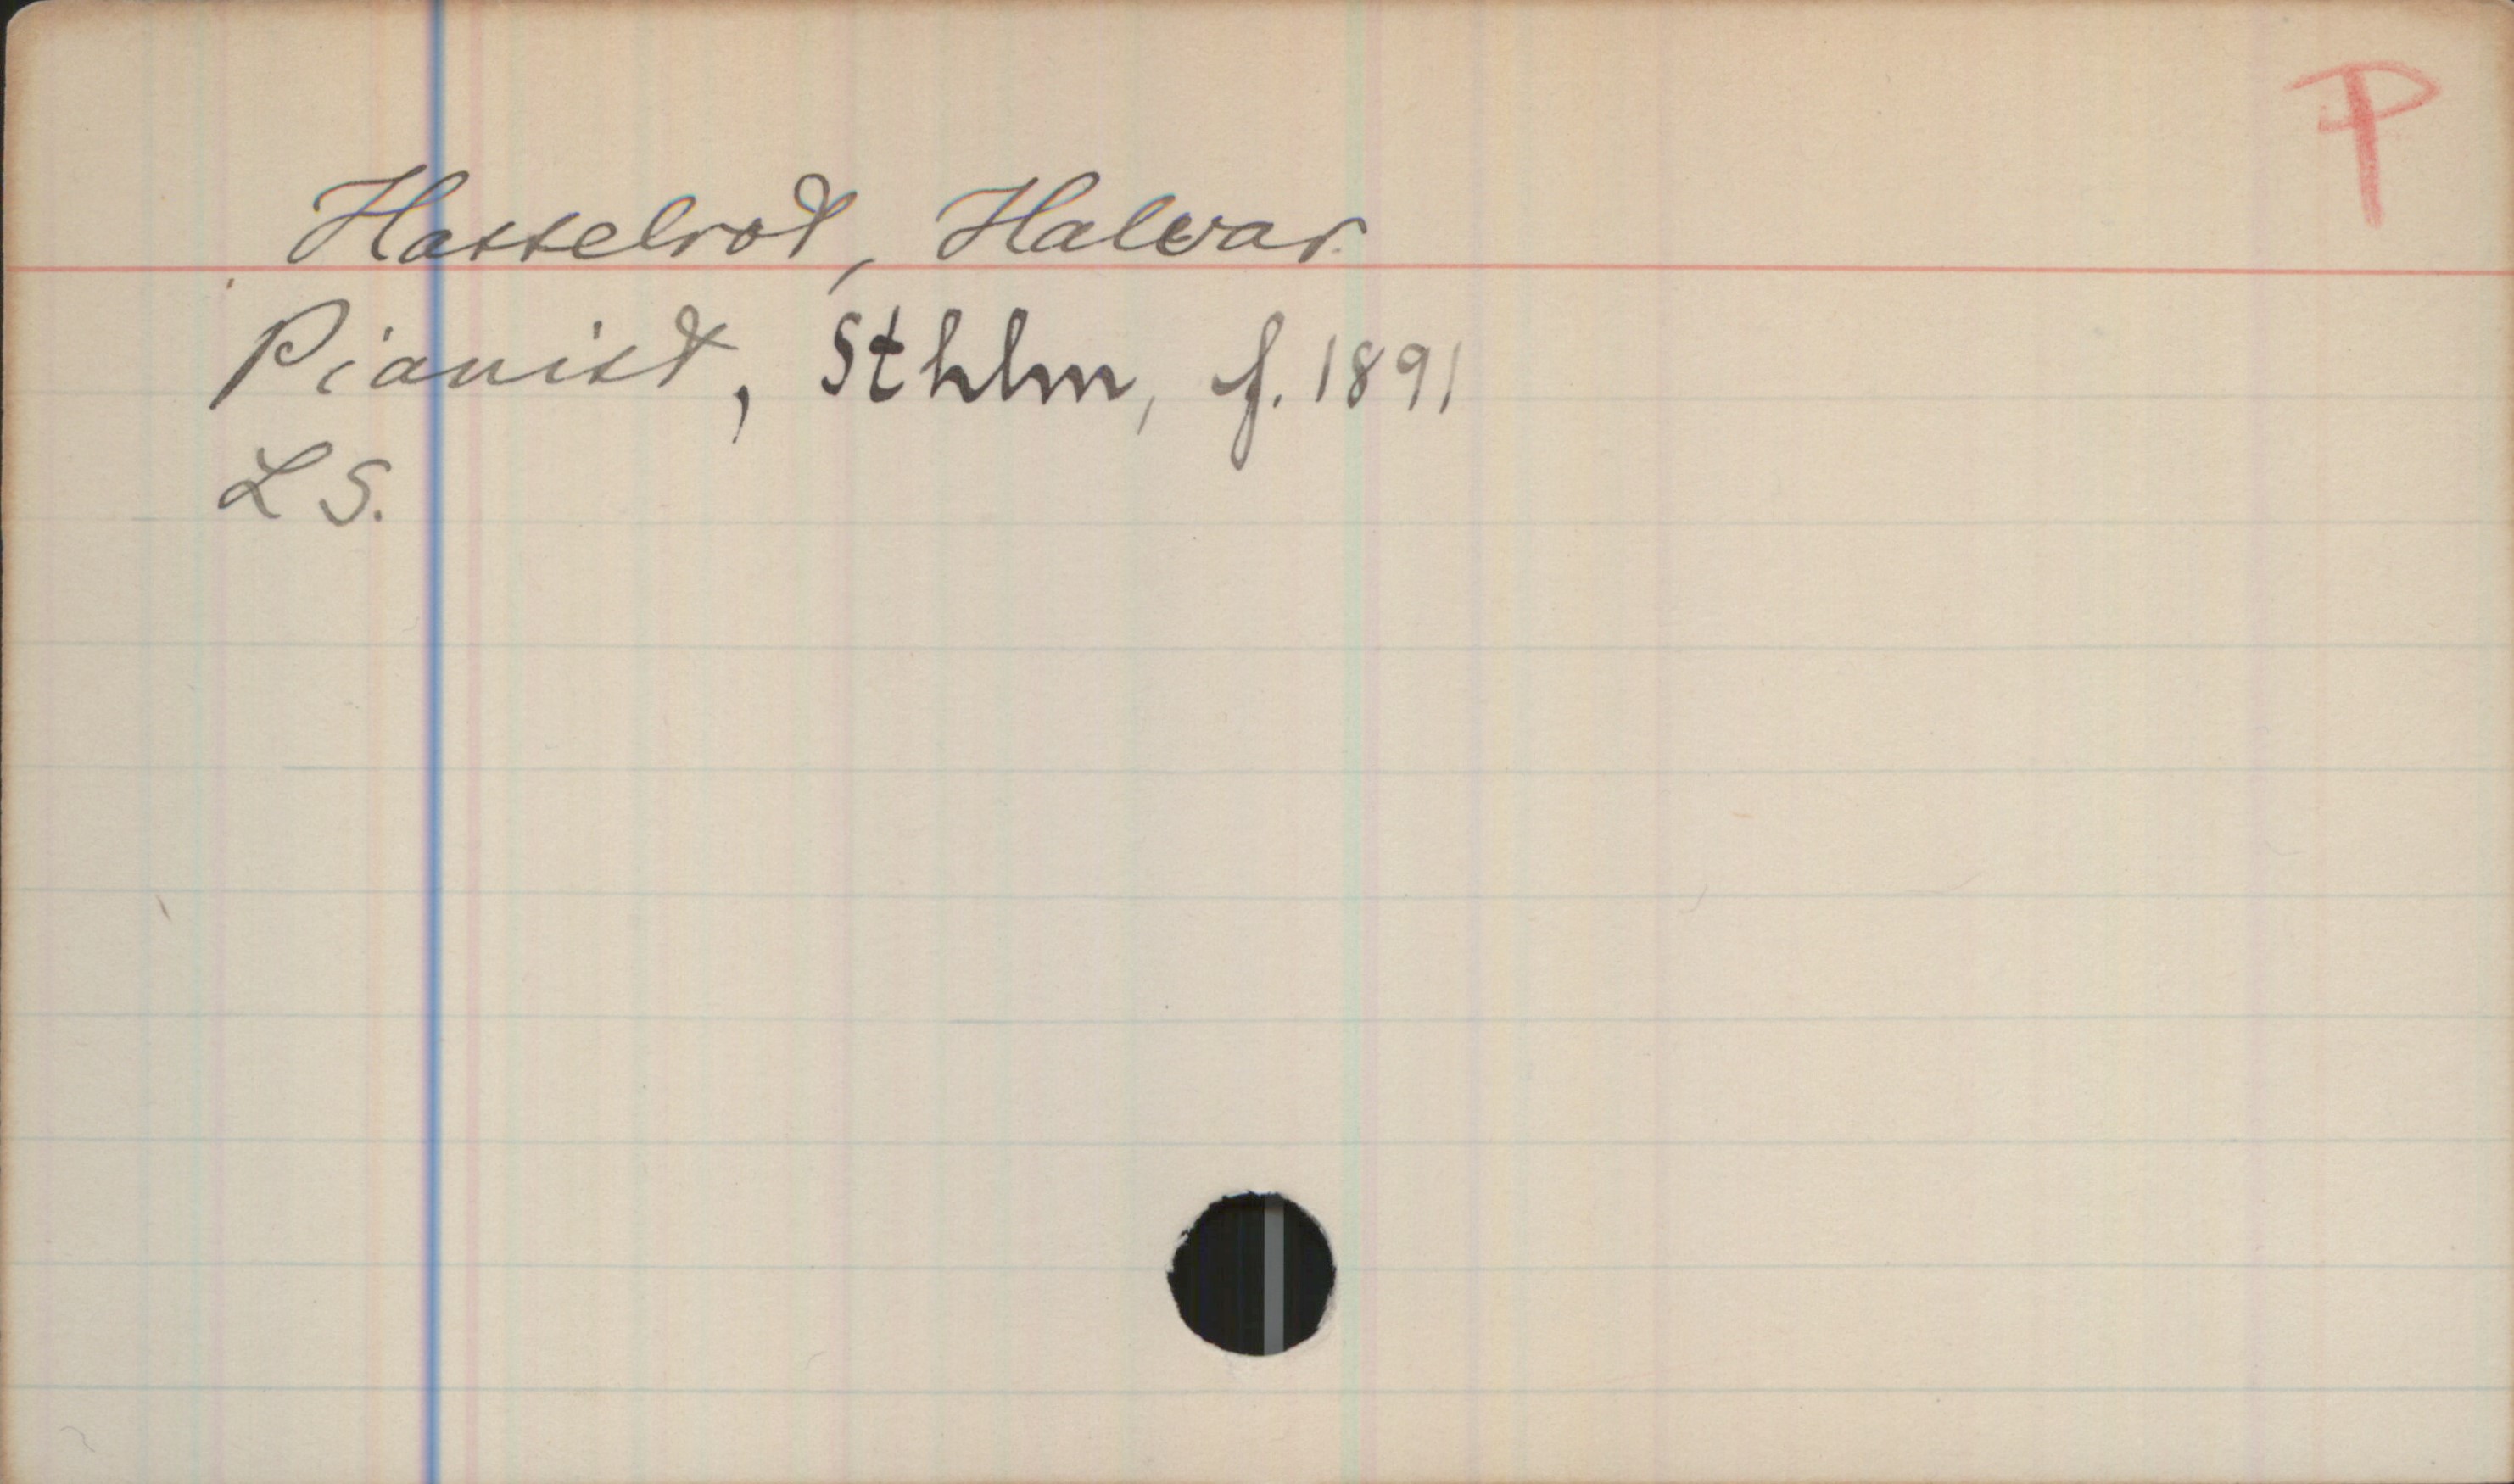 P
Hasselrot, Halvar
Pianist, Sthlm, f. 1891
LS.